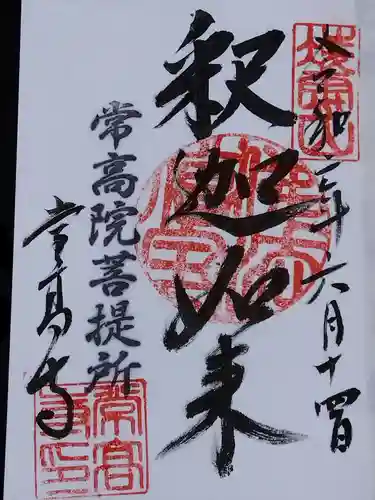 令和六年六月十四日
釈迦如来
常高院菩提所
常高寺